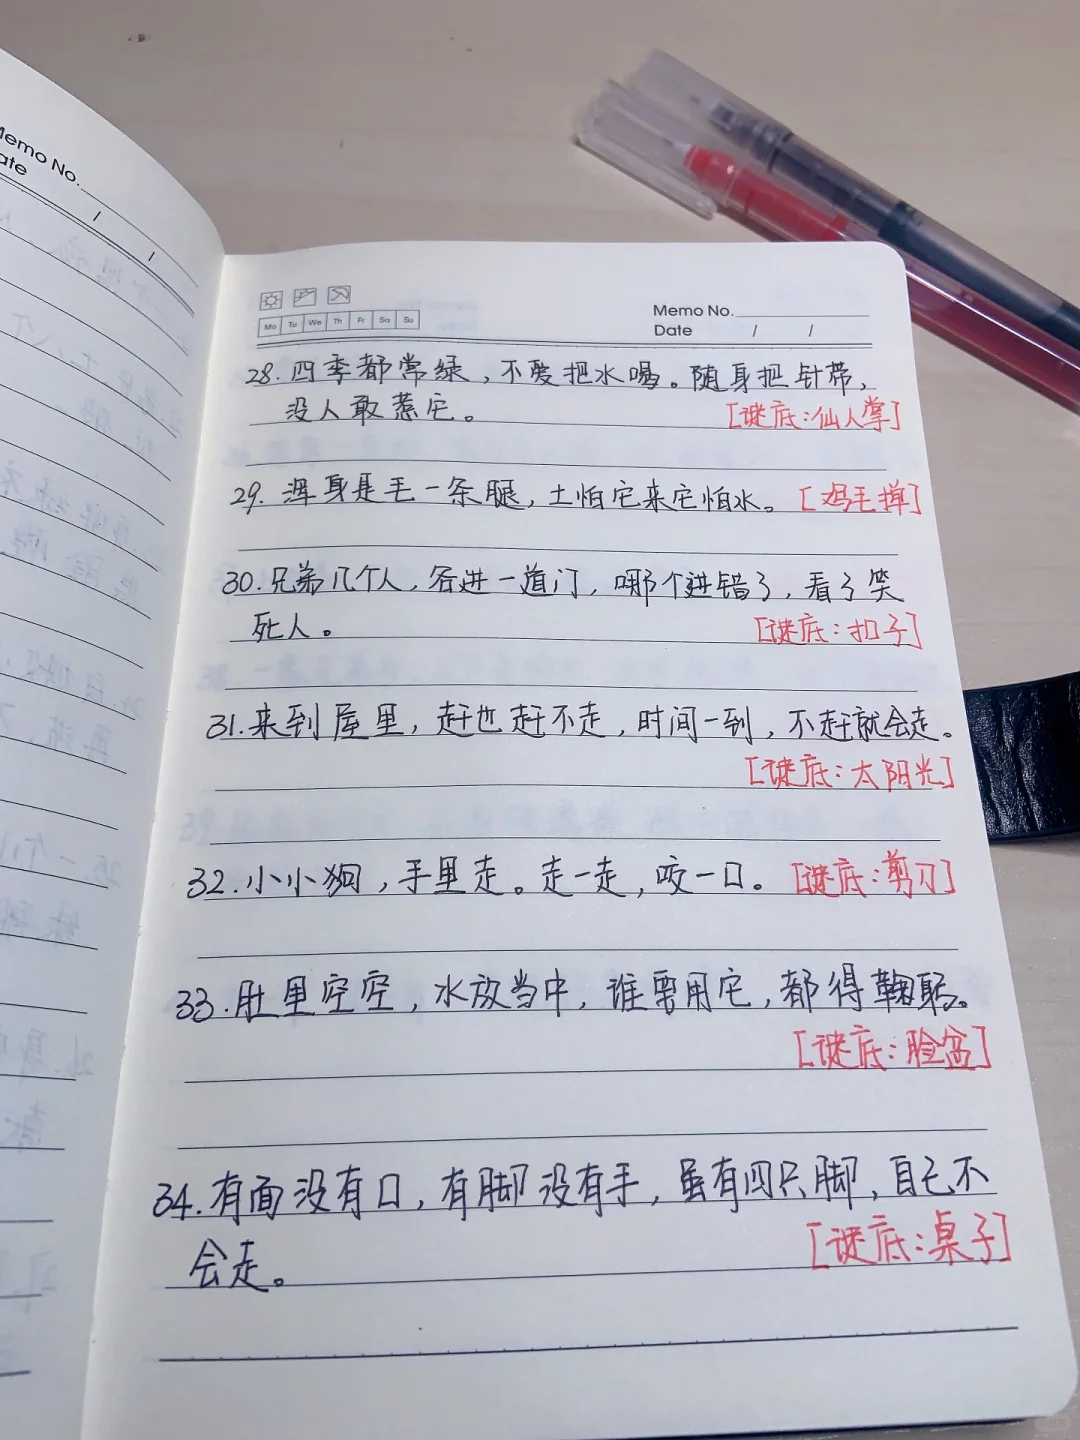 Memo No.
Date / /
Mo Tu We Th Fr Sa Su
Memo No.
Date / /
28.四季都常绿，不爱把水喝。随身把针带，
没人敢惹它。
[谜底:仙人掌]
29.浑身是毛一条腿，土怕它来它怕水。[鸡毛掸]
30.兄弟几个人，各进一道门，哪个进错了，看了笑
死人。
[谜底:扣子]
31.来到屋里，赶也赶不走，时间一到，不赶就会走。
[谜底:太阳光]
32.小小狗，手里走。走一走，咬一口。[谜底:剪刀]
33.肚里空空，水放当中，谁要用它，都得鞠躬。
[谜底:脸盆]
34.有面没有口，有脚没有手，虽有四只脚，自己不
会走。
[谜底:桌子]